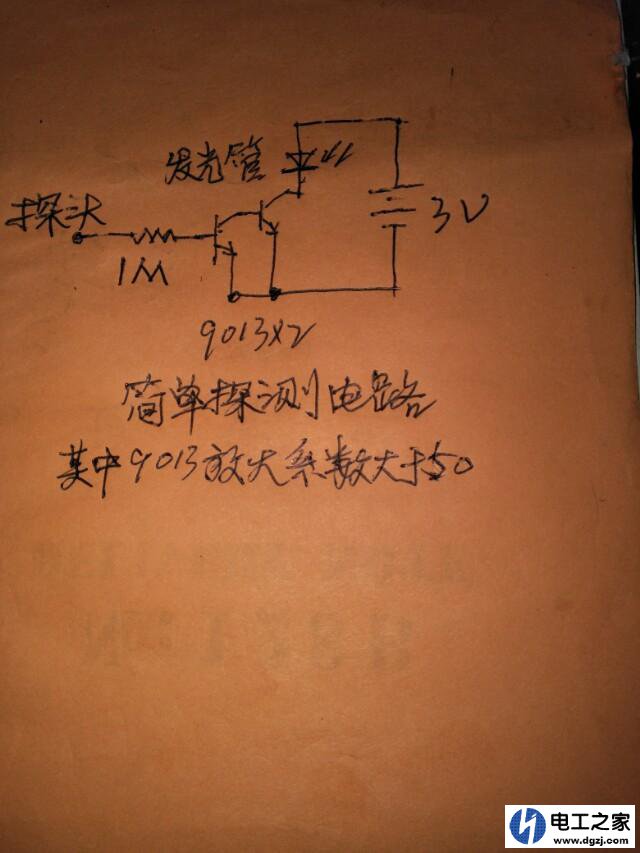 发光管
探头
1M
3V
9013×2
简单探测电路
其中9013放大系数大于50
电工之家
www.dgzj.com